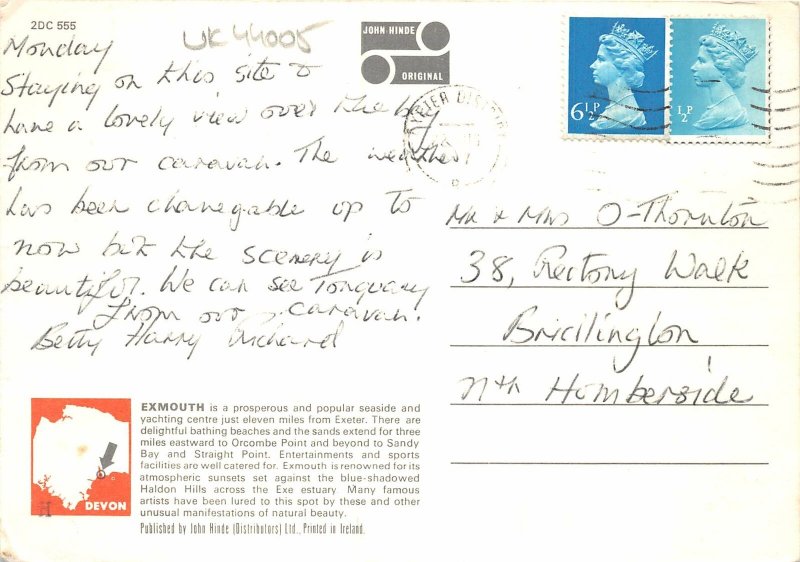 2DC 555
UK 44005
JOHN HINDE
ORIGINAL
6½P
½P
EXETER DISTRICT
Monday
Staying on this site &
have a lovely view over the bay
from our caravan. The weather
has been changable up to
now but the scenery is
beautiful. We can see Torquay
from our caravan.
Betty Harry Richard
Mr & Mrs O-Thornton
38, Rectory Walk
Bridlington
Nth Homberside
EXMOUTH is a prosperous and popular seaside and
yachting centre just eleven miles from Exeter. There are
delightful bathing beaches and the sands extend for three
miles eastward to Orcombe Point and beyond to Sandy
Bay and Straight Point. Entertainments and sports
facilities are well catered for. Exmouth is renowned for its
atmospheric sunsets set against the blue-shadowed
Haldon Hills across the Exe estuary. Many famous
artists have been lured to this spot by these and other
unusual manifestations of natural beauty.
H
DEVON
Published by John Hinde (Distributors) Ltd., Printed in Ireland.